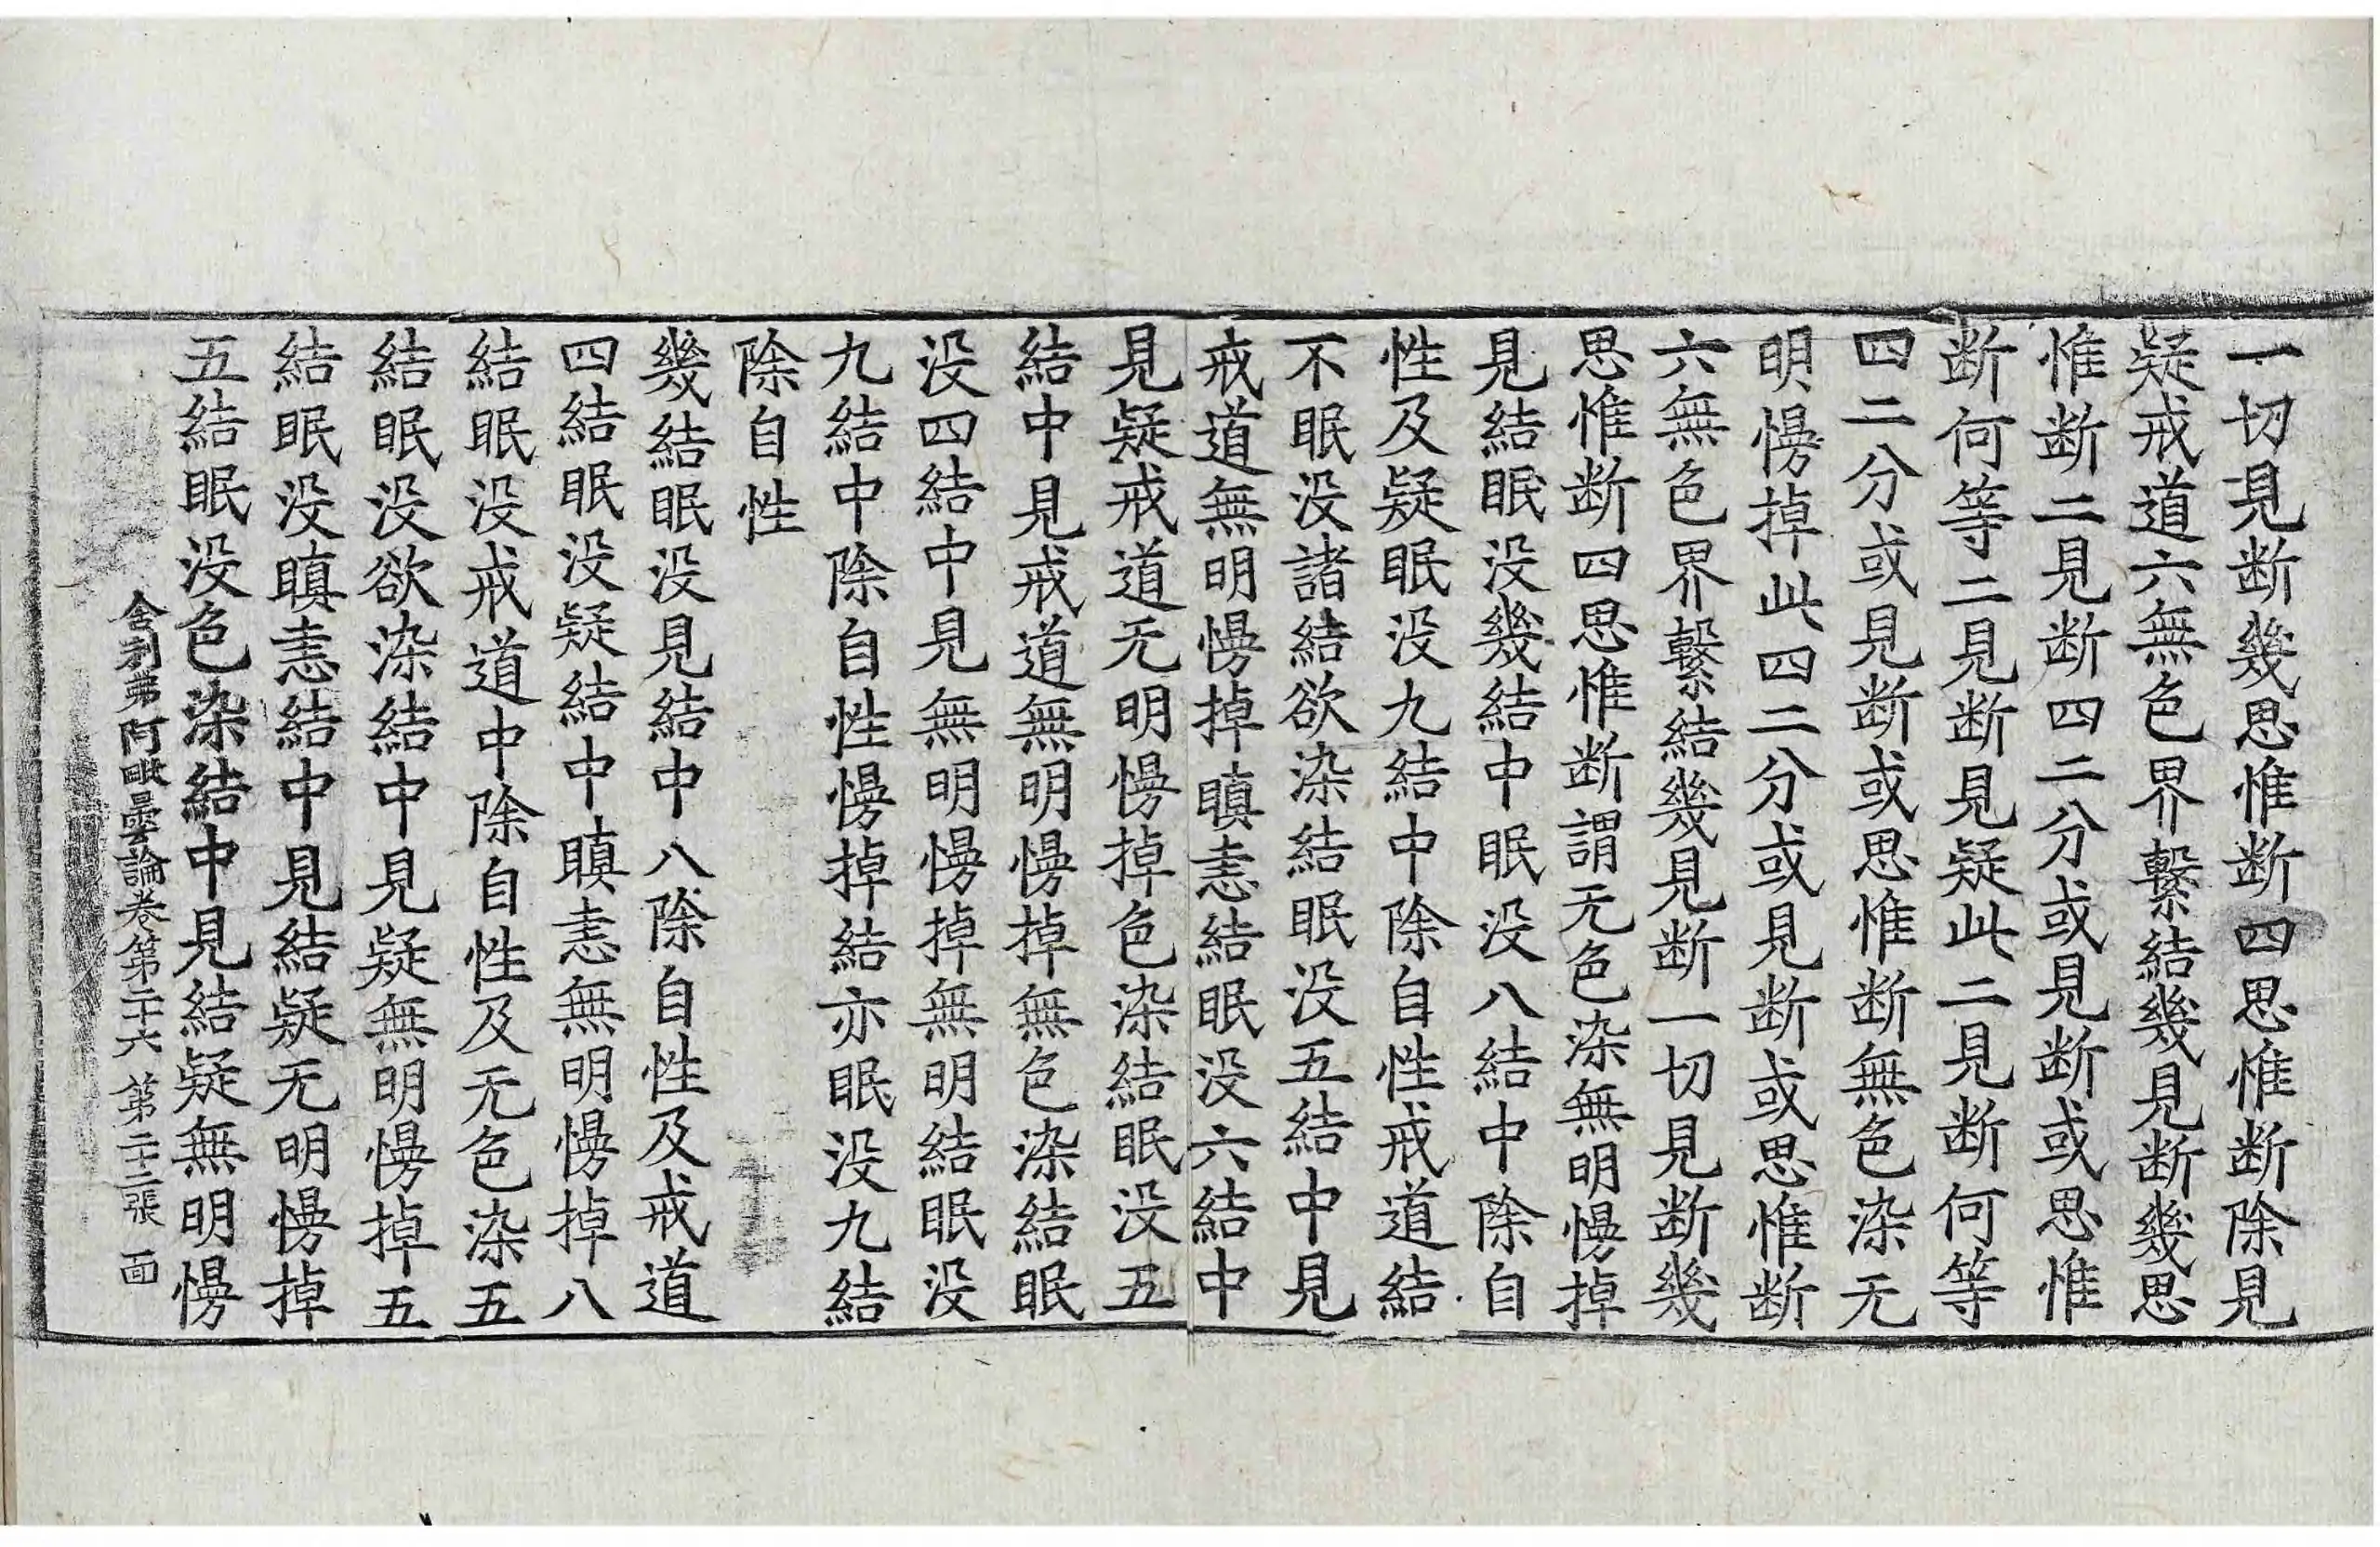 一切見断幾思惟断四思惟断除見
疑戒道六無色界繫結幾見断幾思
惟断二見断四二分或見断或思惟
断何等二見断見疑此二見断何等
四二分或見断或思惟断無色染无
明慢掉此四二分或見断或思惟断
六無色界繫結幾見断一切見断幾
思惟断四思惟断謂无色染無明慢掉
見結眠没幾結中眠没八結中除自
性及疑眠没九結中除自性戒道結
不眠没諸結欲染結眠没五結中見
戒道無明慢掉瞋恚結眠没六結中
見疑戒道无明慢掉色染結眠没五
結中見戒道無明慢掉無色染結眠
没四結中見無明慢掉無明結眠没
九結中除自性慢掉結亦眠没九結
除自性
幾結眠没見結中八除自性及戒道
四結眠没疑結中瞋恚無明慢掉八
結眠没戒道中除自性及无色染五
結眠没欲染結中見疑無明慢掉五
結眠没瞋恚結中見結疑无明慢掉
五結眠没色染結中見結疑無明慢
舍利弗阿毗曇論卷第二十六 第二十二張 面